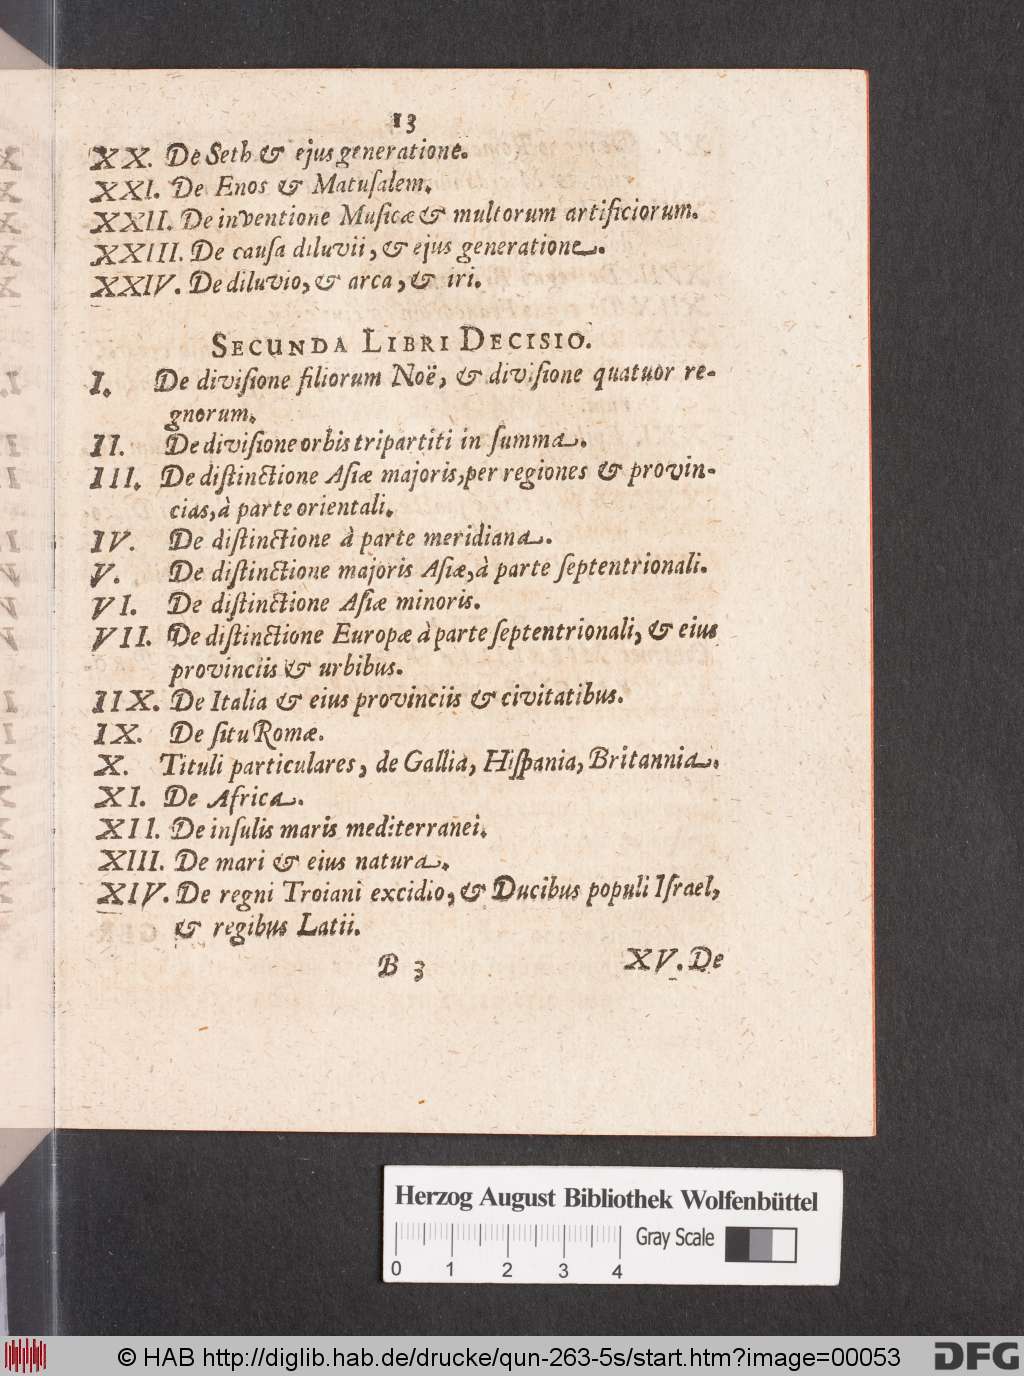 13
XX. De Seth & ejus generatione.
XXI. De Enos & Matuſalem.
XXII. De inventione Muſicæ & multorum artificiorum.
XXIII. De cauſa diluvii, & ejus generatione.
XXIV. De diluvio, & arca, & iri.
SECUNDA LIBRI DECISIO.
I. De diviſione filiorum Noë, & diviſione quatuor re-
gnorum.
II. De diviſione orbis tripartiti in ſumma.
III. De diſtinctione Aſiæ majoris, per regiones & provin-
cias, à parte orientali.
IV. De diſtinctione à parte meridiana.
V. De diſtinctione majoris Aſiæ, à parte ſeptentrionali.
VI. De diſtinctione Aſiæ minoris.
VII. De diſtinctione Europæ à parte ſeptentrionali, & eius
provinciis & urbibus.
IIX. De Italia & eius provinciis & civitatibus.
IX. De ſitu Romæ.
X. Tituli particulares, de Gallia, Hiſpania, Britannia.
XI. De Africa.
XII. De inſulis maris mediterranei.
XIII. De mari & eius natura.
XIV. De regni Troiani excidio, & Ducibus populi Iſrael,
& regibus Latii.
B 3 XV. De
Herzog August Bibliothek Wolfenbüttel
Gray Scale
0 1 2 3 4
© HAB http://diglib.hab.de/drucke/qun-263-5s/start.htm?image=00053
DFG